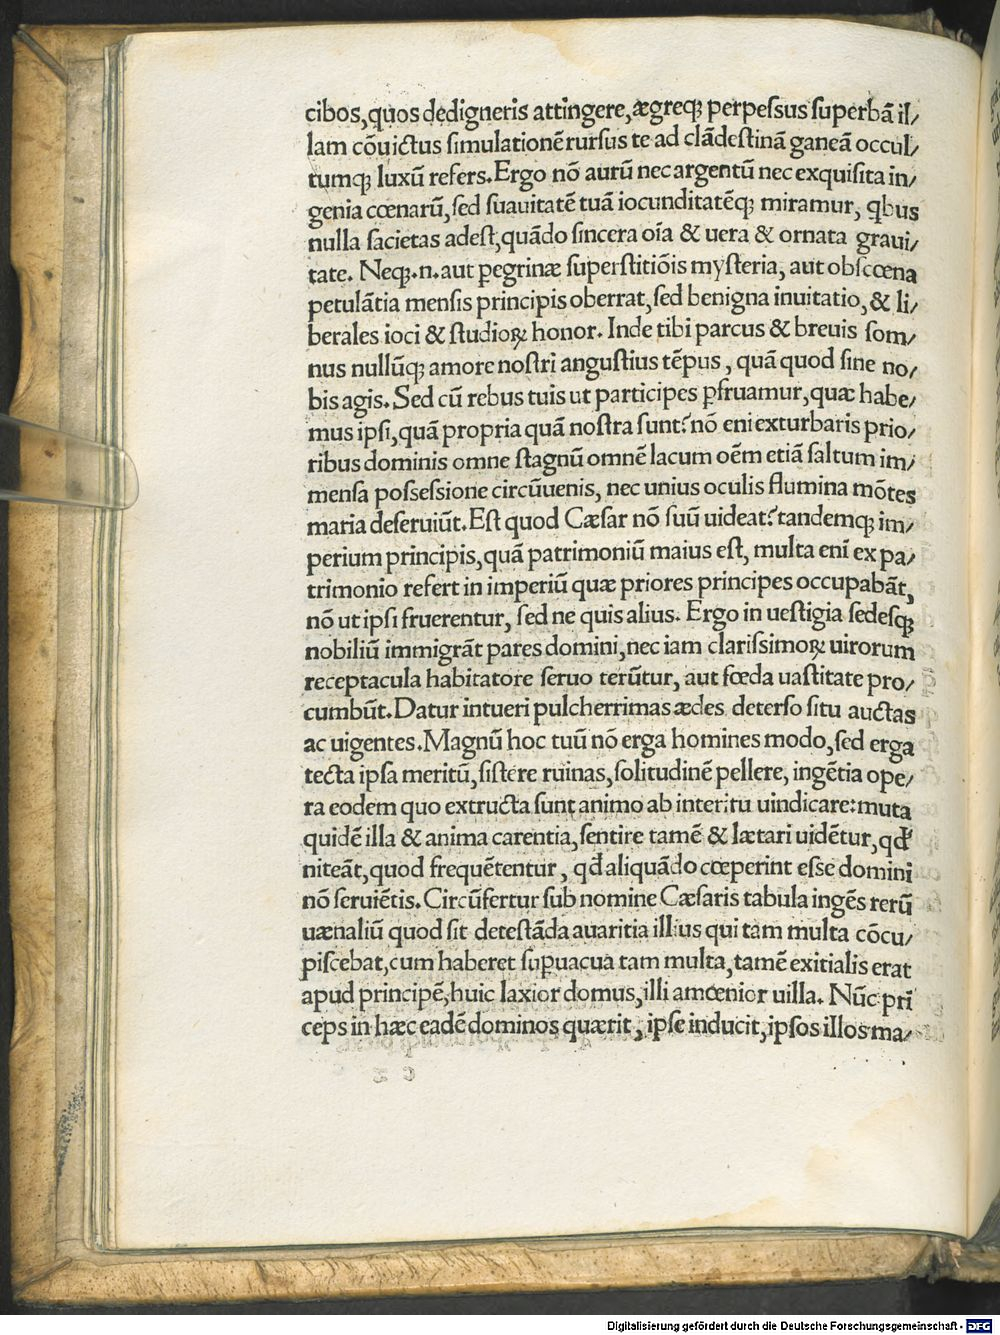 cibos,quos dedigneris attingere,ægreqꝫ perpeſsus ſuperbã il/
lam cõuictus ſimulationẽ rurſus te ad clãdeſtinã ganeã occul/
tumqꝫ luxũ refers.Ergo nõ aurũ nec argentũ nec exquiſita in/
genia cœnarũ,ſed ſuauitatẽ tuã iocunditatẽqꝫ miramur, qbus
nulla ſacietas adeſt,quãdo ſincera oĩa & uera & ornata graui/
tate. Neqꝫ.n.aut ꝑegrinæ ſuperſtitiõis myſteria, aut obſcœna
petulãtia menſis principis oberrat,ſed benigna inuitatio,& li/
berales ioci & ſtudioꝝ honor. Inde tibi parcus & breuis ſom/
nus nullũqꝫ amore noſtri anguſtius tẽpus , quã quod ſine no/
bis agis.Sed cũ rebus tuis ut participes ꝑfruamur,quæ habe/
mus ipſi,quã propria quã noſtra ſunt?nõ eni exturbatis prio/
ribus dominis omne ſtagnũ omnẽ lacum oẽm etiã ſaltum im/
menſa poſseſsione circũuenis, nec unius oculis flumina mõtes
maria deſeruiũt.Eſt quod Cæſar nõ ſuũ uideat?tandemqꝫ im/
perium principis,quã patrimoniũ maius eſt, multa enĩ ex pa/
trimonio refert in imperiũ quæ priores principes occupabãt,
nõ ut ipſi fruerentur, ſed ne quis alius. Ergo in ueſtigia ſedeſqꝫ
nobiliũ immigrãt pares domini,nec iam clariſsimoꝝ uirorum
receptacula habitatore ſeruo terũtur, aut fœda uaſtitate pro/
cumbũt.Datur intueri pulcherrimas ædes deterſo ſitu auctas
ac uigentes.Magnũ hoc tuũ nõ erga homines modo,ſed erga
tecta ipſa meritũ,ſiſtere ruinas,ſolitudinẽ pellere, ingẽtia ope/
ra eodem quo extructa ſunt animo ab interitu uindicare:muta
quidẽ illa & anima carentia,ſentire tamẽ & lætari uidẽtur,qđ
niteãt,quod frequẽtentur , qđ aliquãdo cœperint eſse domini
nõ ſeruiẽtis.Circũfertur ſub nomine Cæſaris tabula ingẽs rerũ
uænaliũ quod ſit deteſtãda auaritia illius qui tam multa cõcu/
piſcebat,cum haberet ſuꝑuacua tam multa,tamẽ exitialis erat
apud principẽ,huic laxior domus,illi amœnior uilla. Nũc pri
ceps in hæc eadẽ dominos quærit , ipſe inducit,ipſos illos ma/